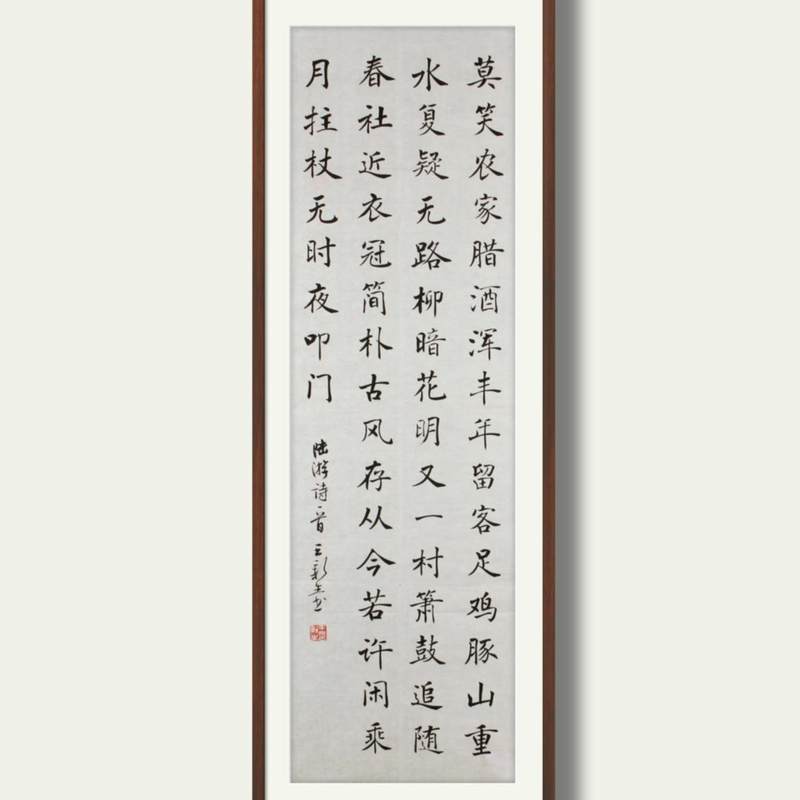 莫笑农家腊酒浑丰年留客足鸡豚山重
水复疑无路柳暗花明又一村箫鼓追随
春社近衣冠简朴古风存从今若许闲乘
月拄杖无时夜叩门
陆游诗一首 王新生书